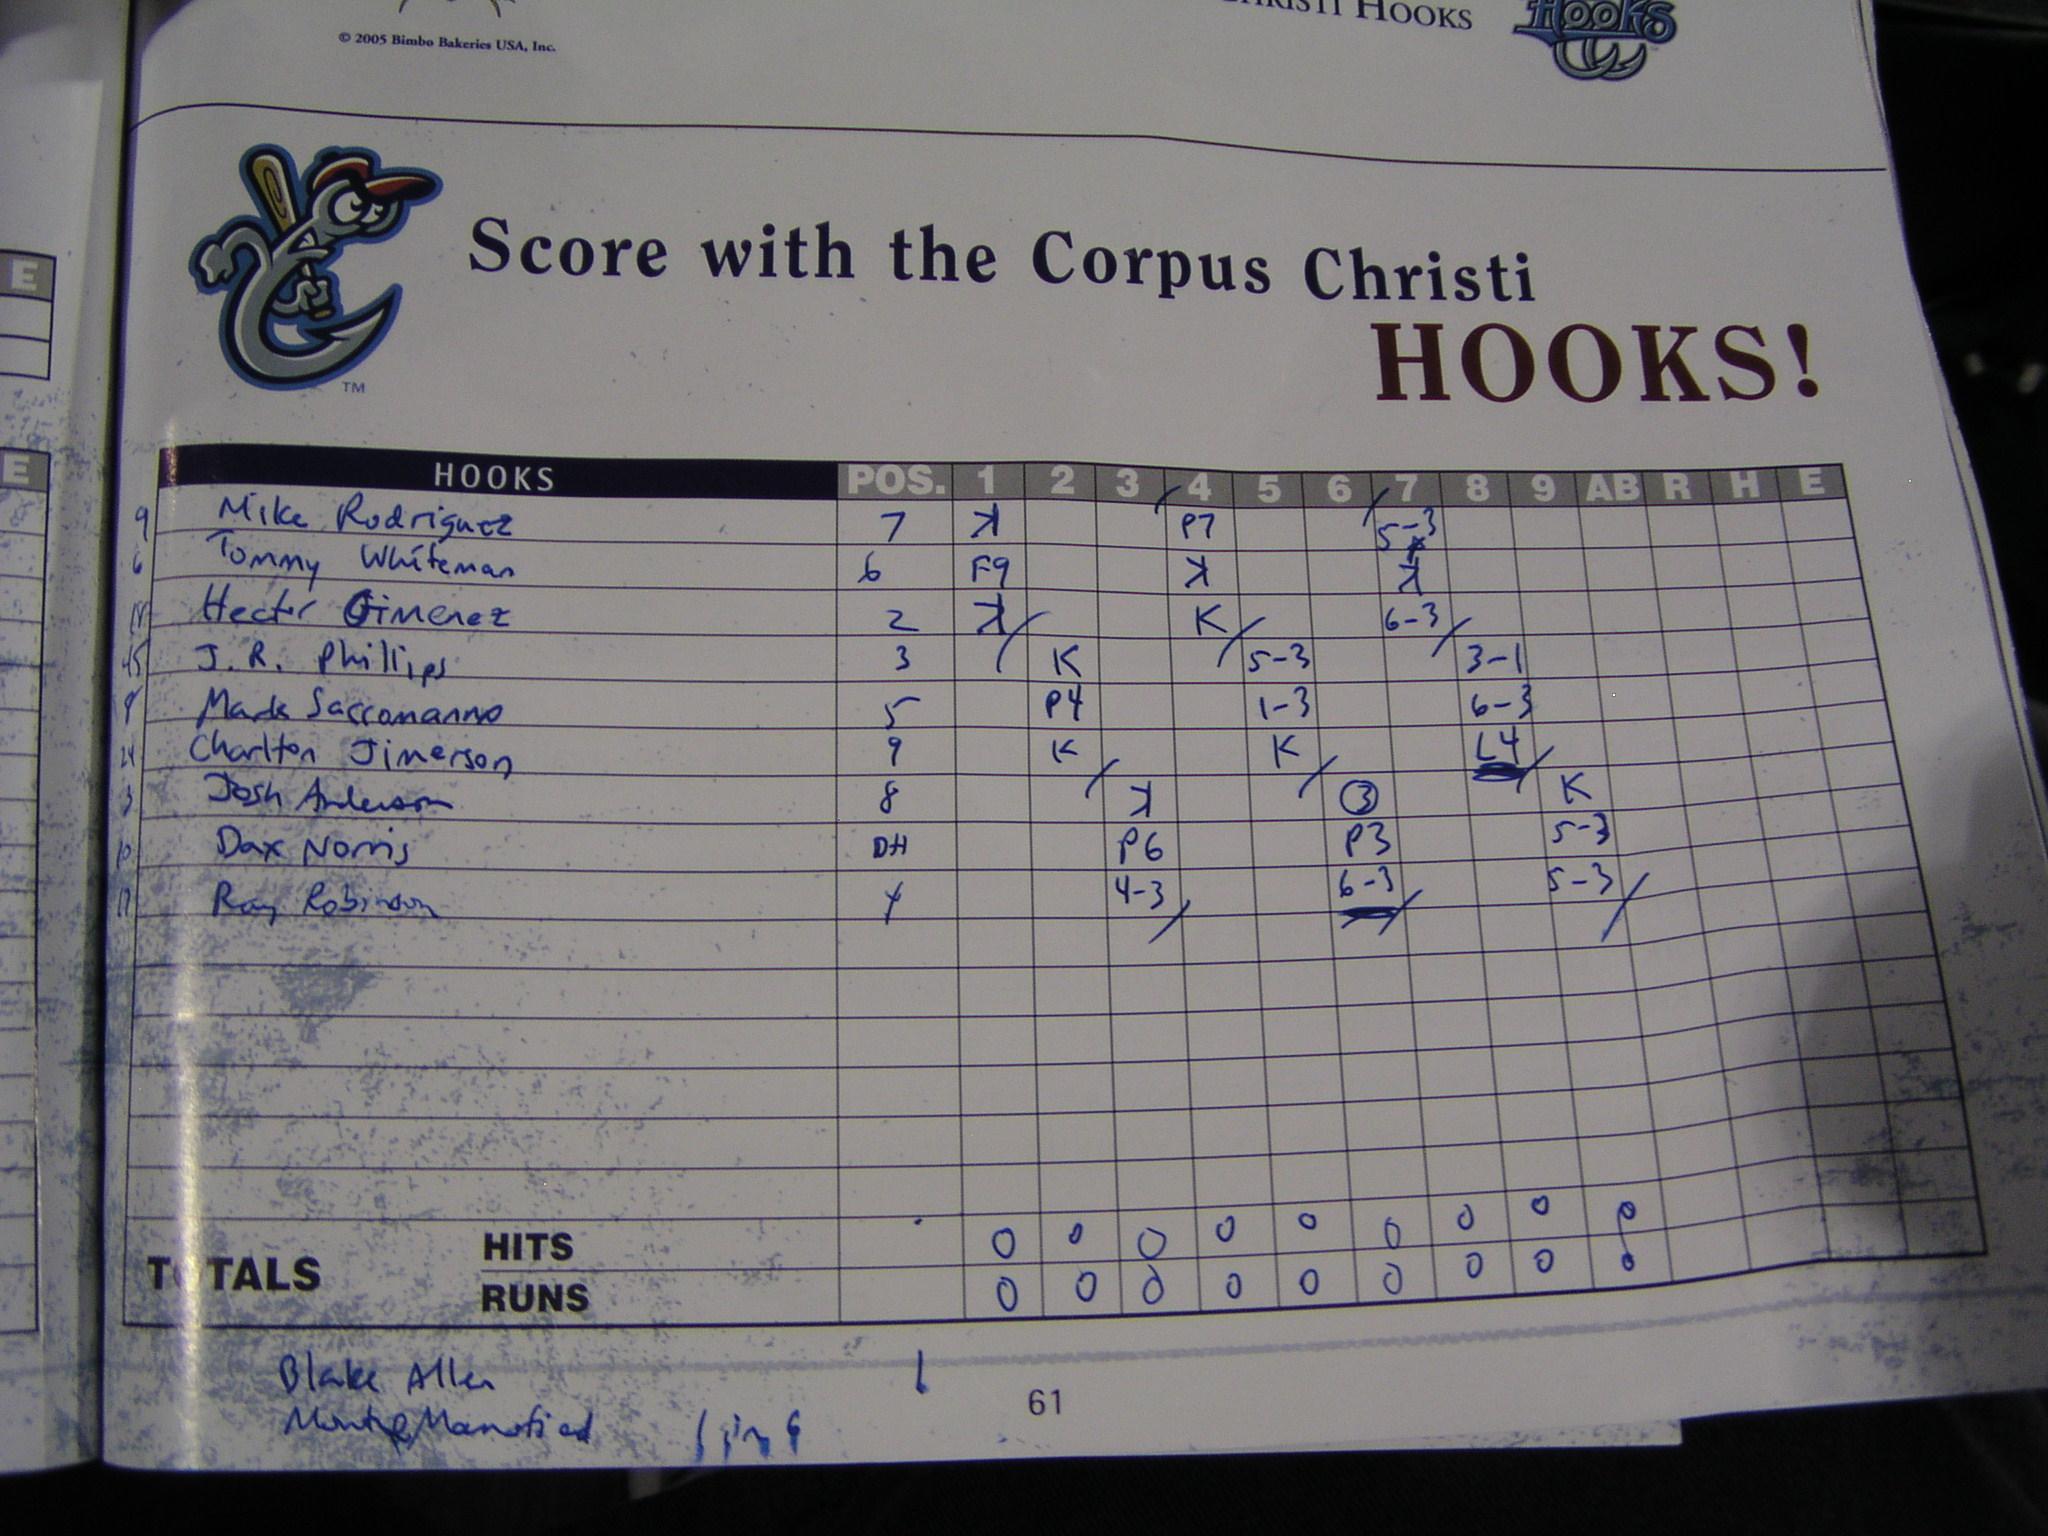 © 2005 Bimbo Bakeries USA, Inc.
CHRISTI HOOKS
Hooks
Score with the Corpus Christi
HOOKS!
TM
E
E
HOOKS POS. 1 2 3 4 5 6 7 8 9 AB R H E
9 Mike Rodriguez 7 ꓘ P7 5-3
6 Tommy Whiteman 6 F9 ꓘ ꓘ
18 Hector Gimenez 2 ꓘ K 6-3
45 J.R. Phillips 3 K 5-3 3-1
8 Mark Saccomanno 5 P4 1-3 6-3
24 Charlton Jimerson 9 K K L4
3 Josh Anderson 8 ꓘ 3 K
10 Dax Norris DH P6 P3 5-3
17 Ray Robinson 4 4-3 6-3 5-3
TOTALS
HITS 0 0 0 0 0 0 0 0 0
RUNS 0 0 0 0 0 0 0 0 0
Blake Allen 1
1 in 6
61